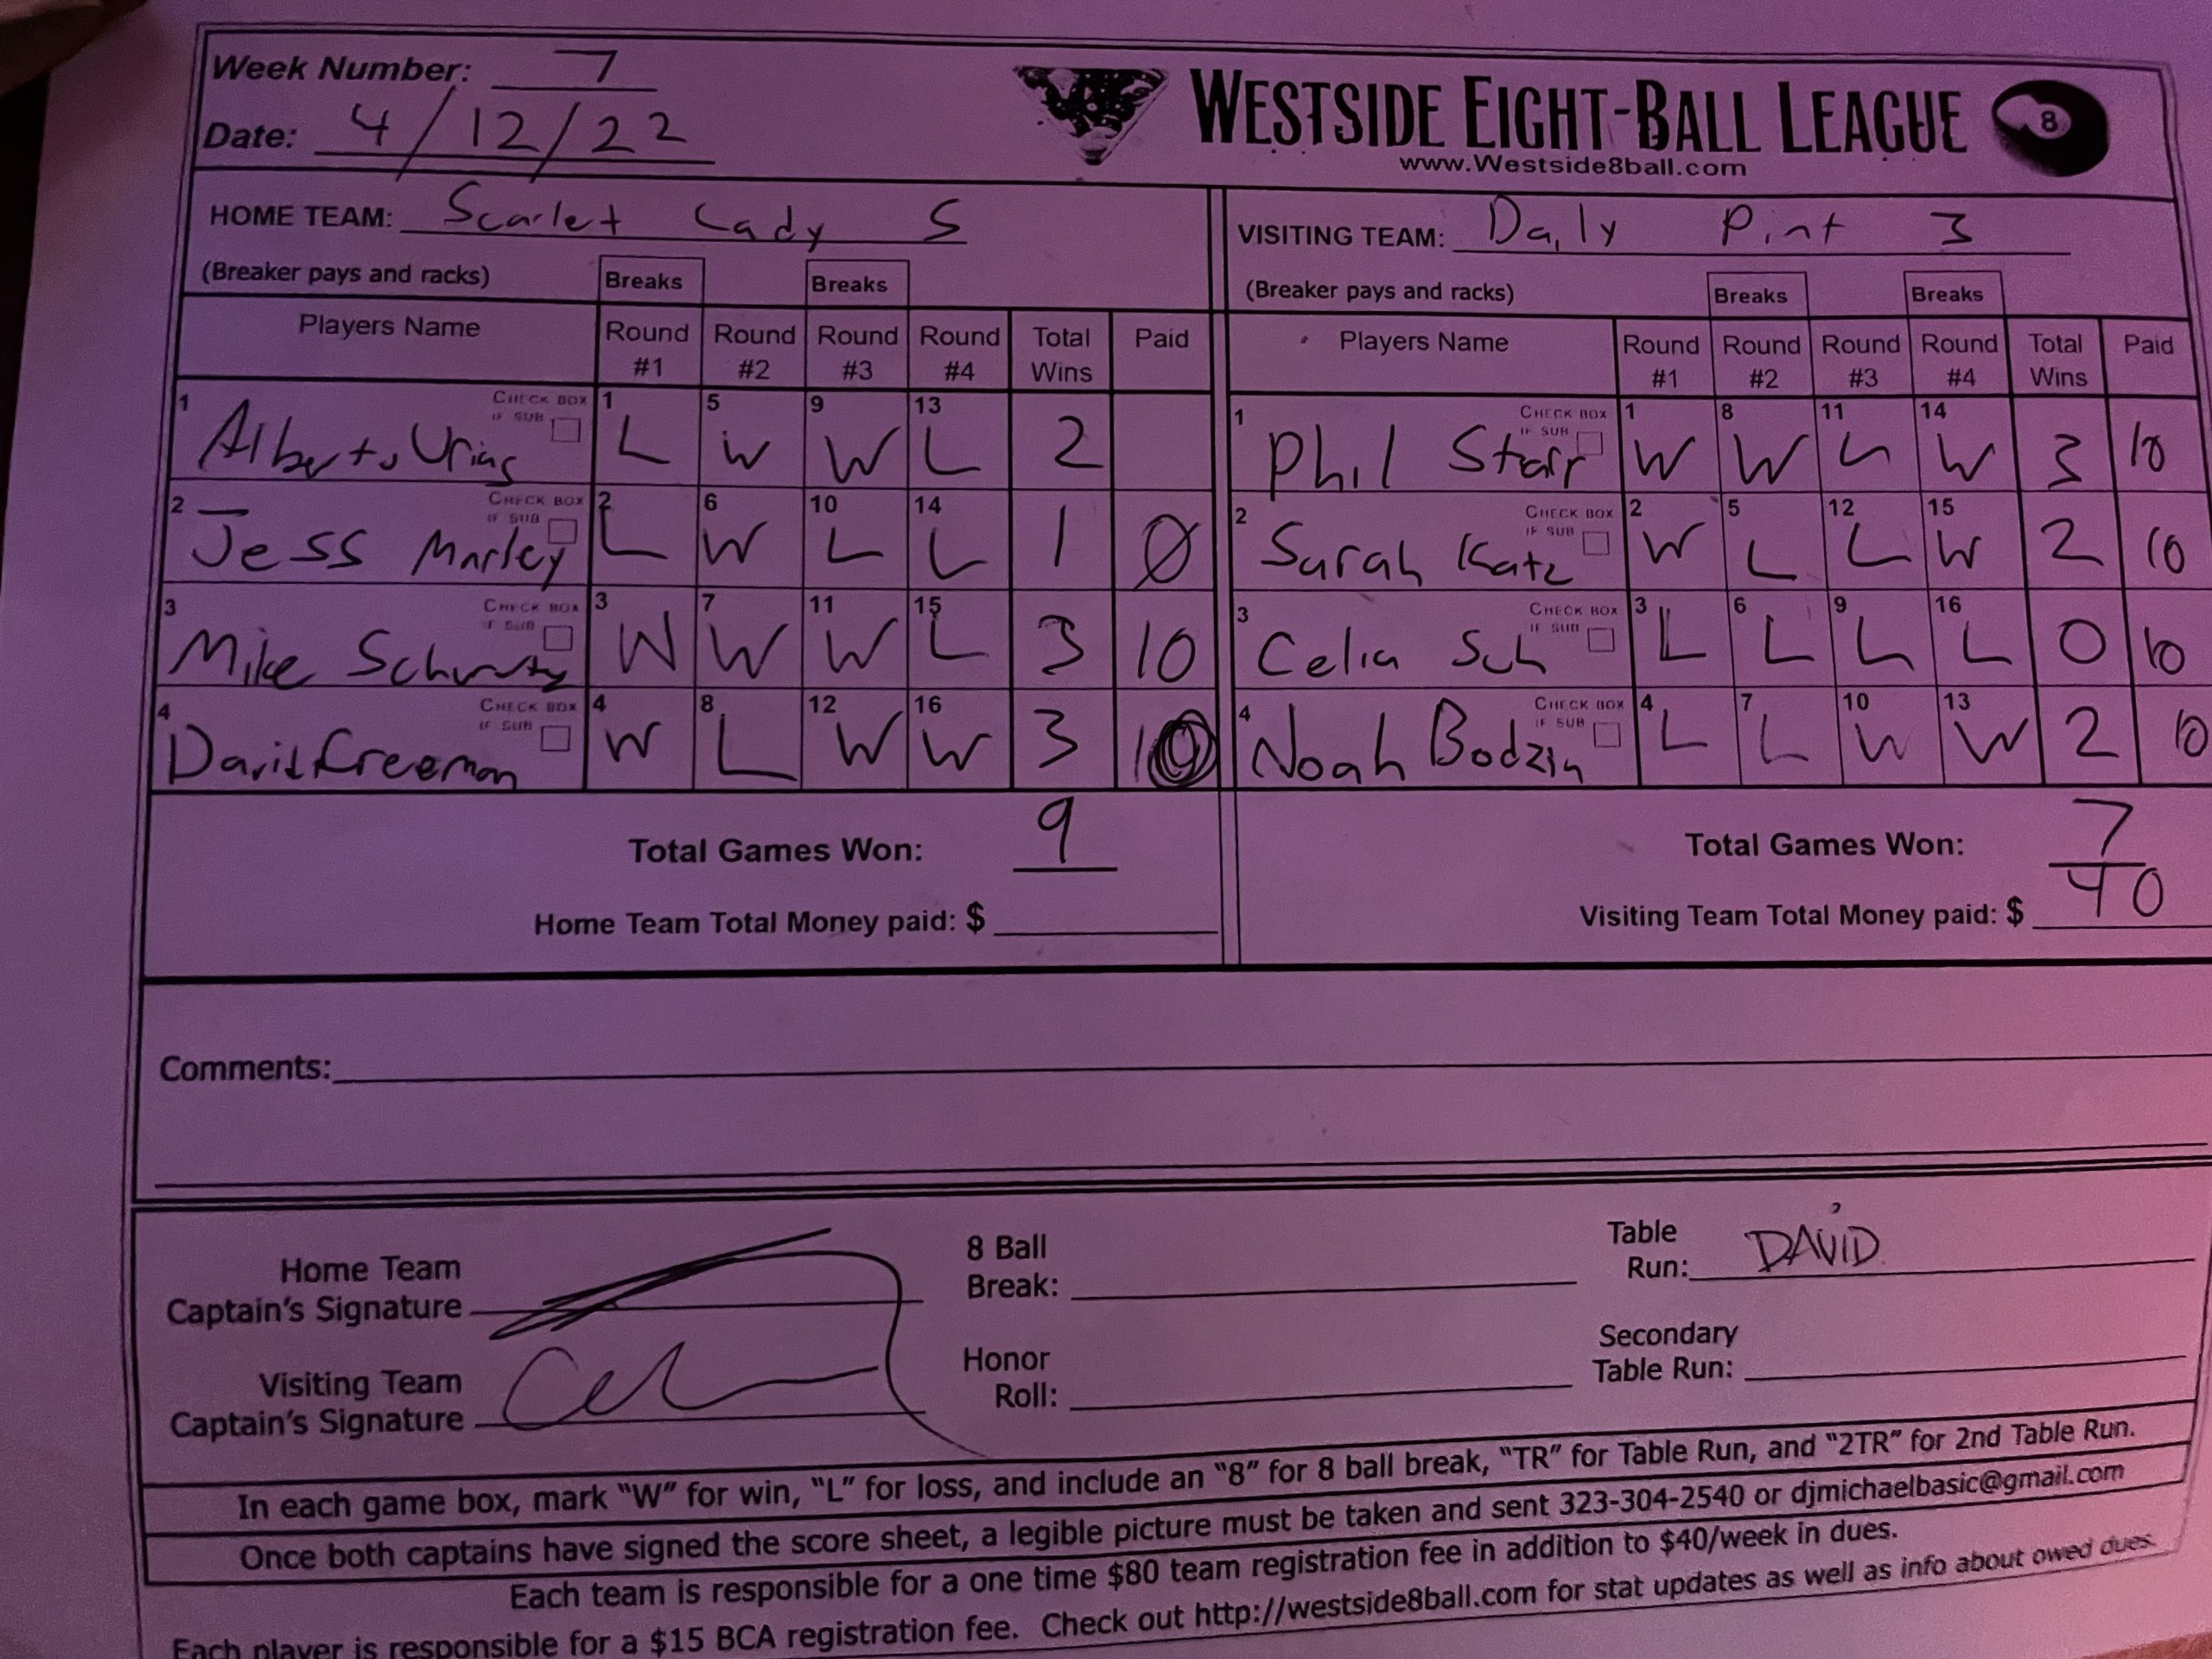 Week Number: 7
Date: 4/12/22
WESTSIDE EIGHT-BALL LEAGUE 8
www.Westside8ball.com
HOME TEAM: Scarlet Lady S
VISITING TEAM: Daily Pint 3
(Breaker pays and racks) Breaks Breaks
(Breaker pays and racks) Breaks Breaks
Players Name Round #1 Round #2 Round #3 Round #4 Total Wins Paid
Players Name Round #1 Round #2 Round #3 Round #4 Total Wins Paid
1 Alberto Urias CHECK BOX IF SUB 1 L 5 W 9 W 13 L 2
1 Phil Starr CHECK BOX IF SUB 1 W 8 W 11 L 14 W 3 10
2 Jess Marley CHECK BOX IF SUB 2 L 6 W 10 L 14 L 1 0
2 Sarah Katz CHECK BOX IF SUB 2 W 5 L 12 L 15 W 2 10
3 Mike CHECK BOX IF SUB 3 W 7 W 11 W 15 L 3 10
3 Celia Sch CHECK BOX IF SUB 3 L 6 L 9 L 16 L 0 10
4 David Freeman CHECK BOX IF SUB 4 W 8 L 12 W 16 W 3 10
4 Noah Bodzin CHECK BOX IF SUB 4 L 7 L 10 W 13 W 2 10
Total Games Won: 9
Total Games Won: 7
Home Team Total Money paid: $
Visiting Team Total Money paid: $ 40
Comments:
Home Team Captain's Signature
8 Ball Break:
Table Run: DAVID
Visiting Team Captain's Signature
Honor Roll:
Secondary Table Run:
In each game box, mark "W" for win, "L" for loss, and include an "8" for 8 ball break, "TR" for Table Run, and "2TR" for 2nd Table Run.
Once both captains have signed the score sheet, a legible picture must be taken and sent 323-304-2540 or djmichaelbasic@gmail.com
Each team is responsible for a one time $80 team registration fee in addition to $40/week in dues.
Each player is responsible for a $15 BCA registration fee. Check out http://westside8ball.com for stat updates as well as info about owed dues.